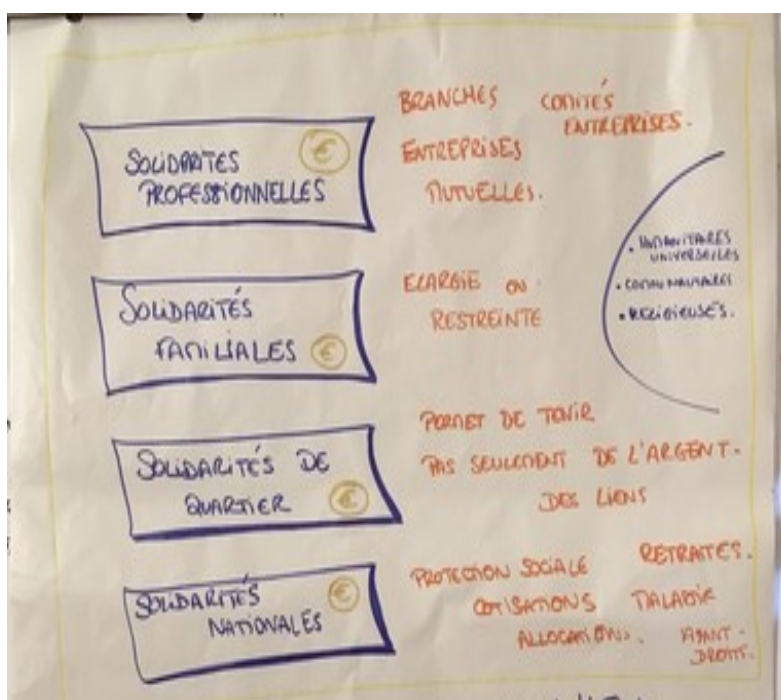 SOLIDARITÉS
PROFESSIONNELLES
€
BRANCHES COMITÉS
ENTREPRISES.
ENTREPRISES
MUTUELLES.
SOLIDARITÉS
FAMILIALES €
ELARGIE OU
RESTREINTE
• HUMANITAIRES
UNIVERSELLES
• COMMUNAUTAIRES
• RELIGIEUSES.
SOLIDARITÉS DE
QUARTIER €
PERMET DE TENIR
PAS SEULEMENT DE L'ARGENT.
DES LIENS
SOLIDARITÉS
NATIONALES
€
PROTECTION SOCIALE RETRAITES.
COTISATIONS MALADIE
ALLOCATIONS. AYANT-
DROIT.